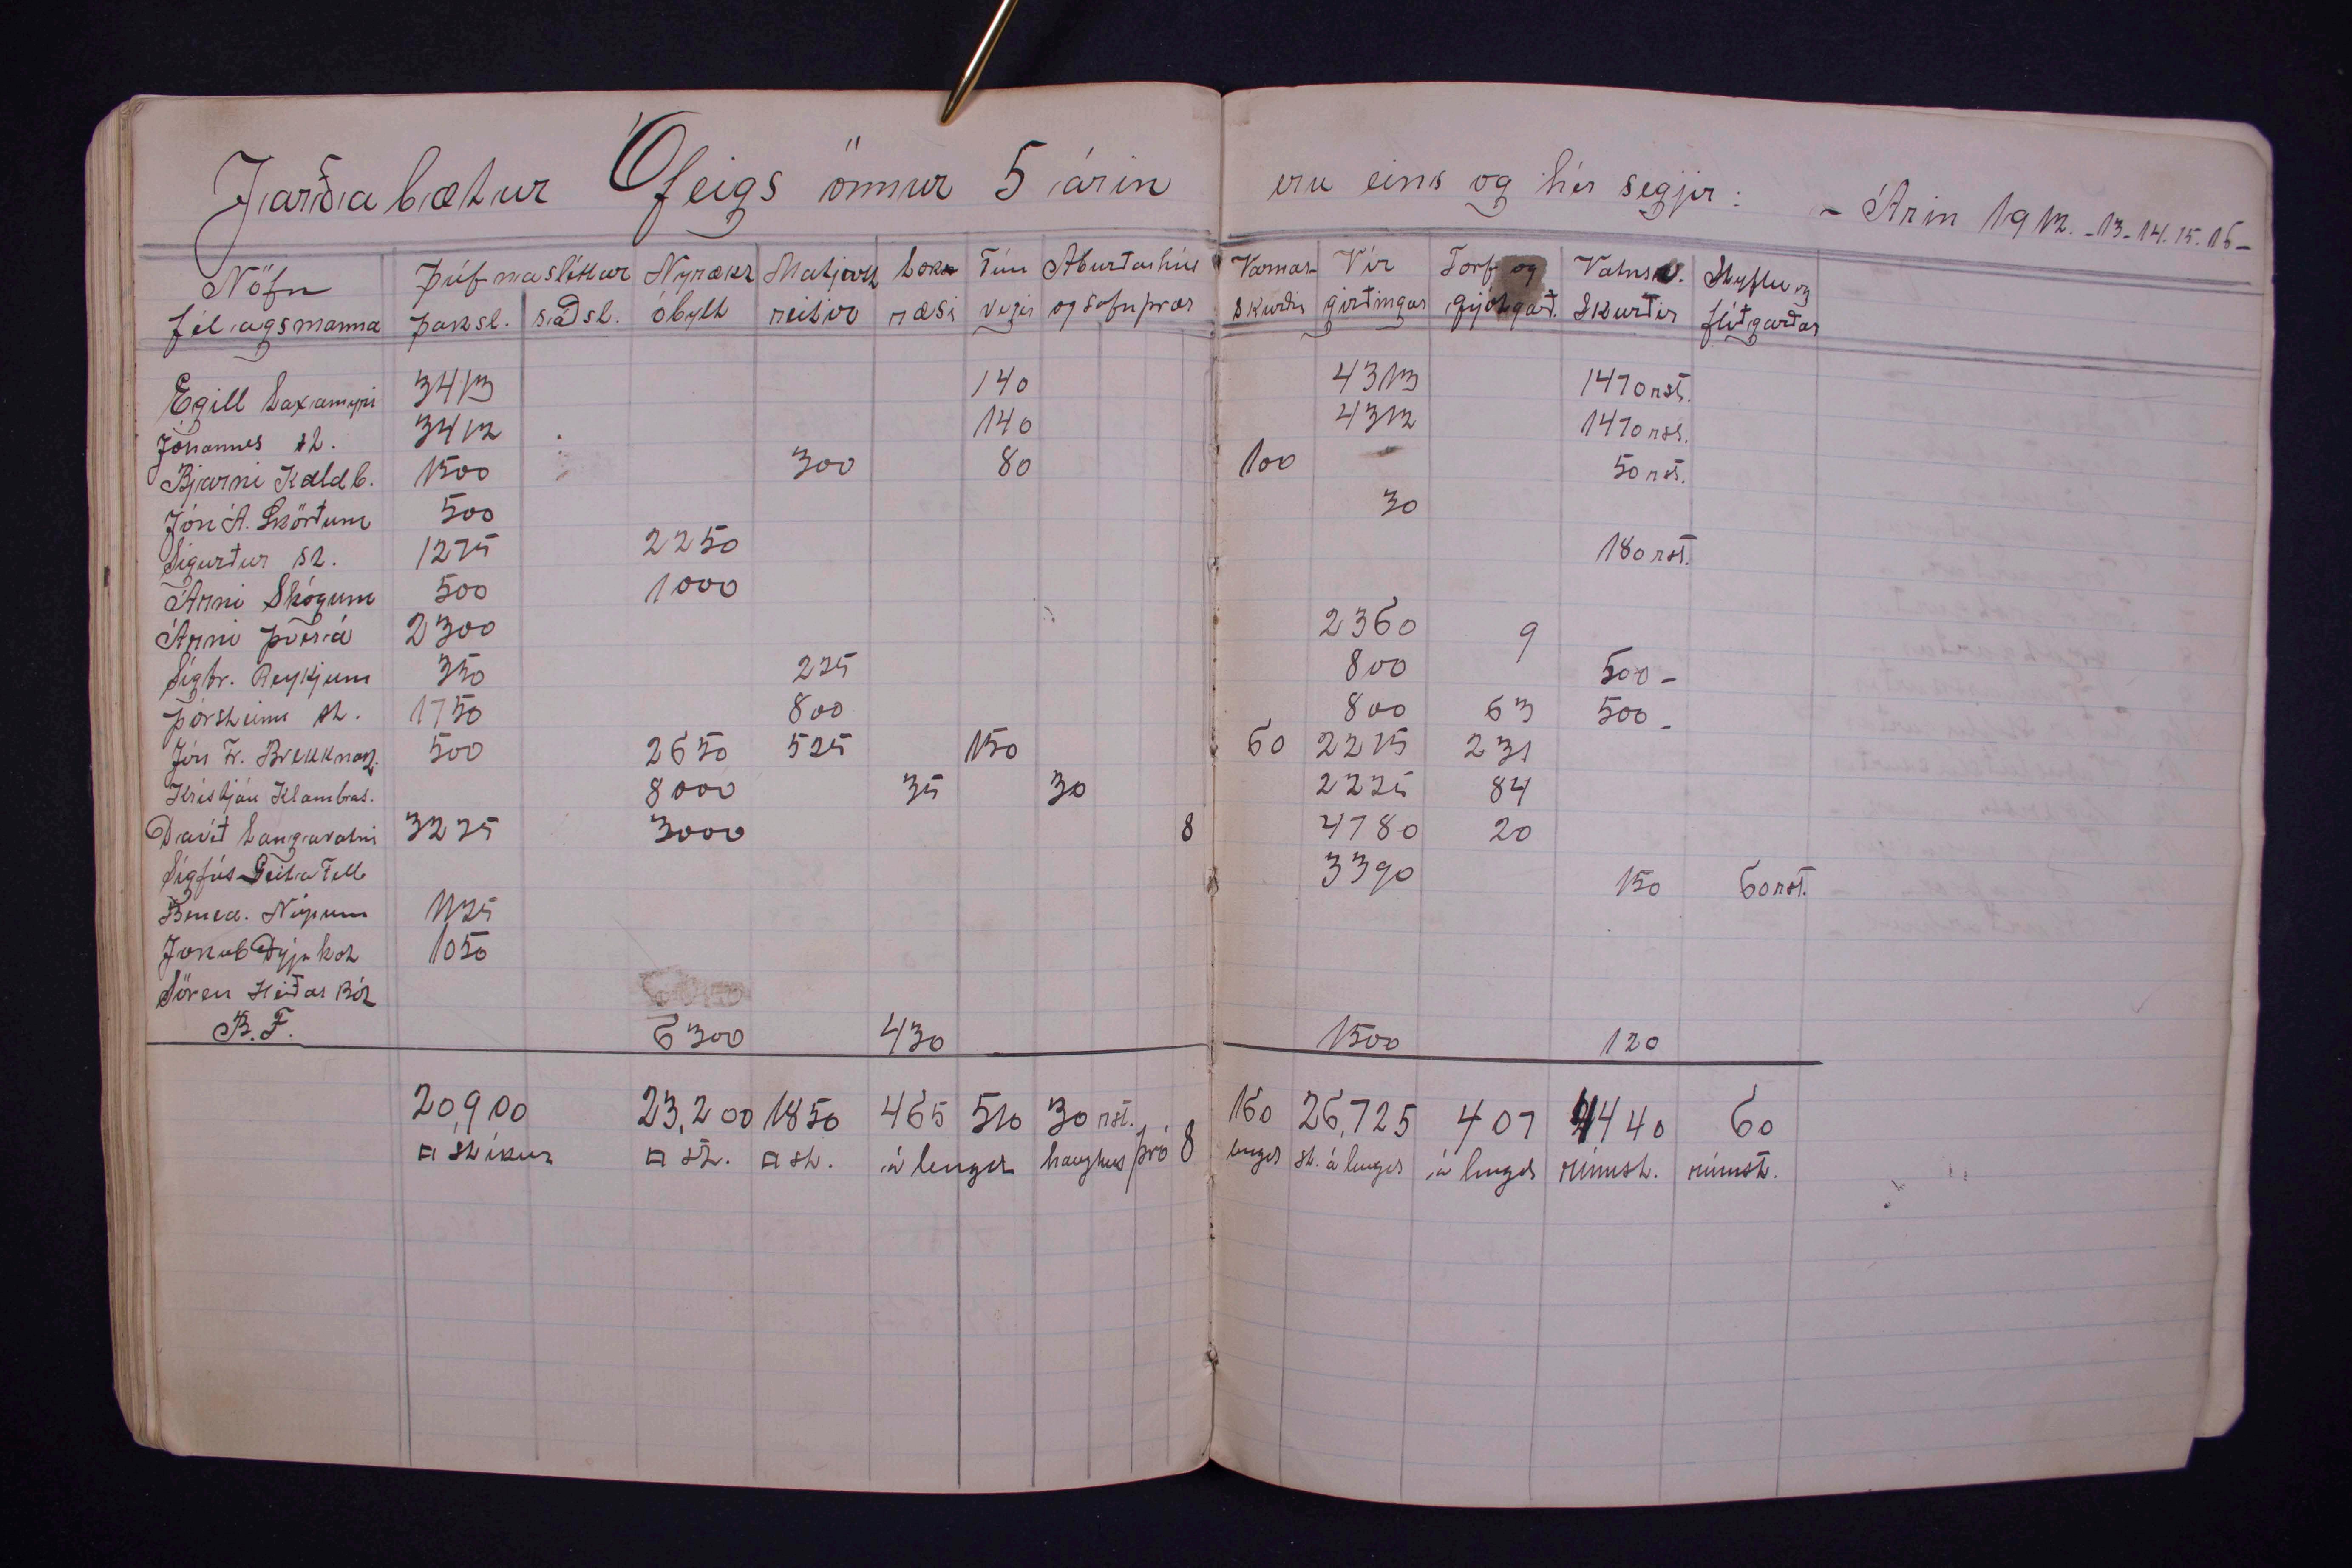 Jarðabætur Ófeigs önnur 5 árin eru eins og hér segjir: - Árin 1912. -13-14.15.16-
Nöfn félagsmanna Þúfnasléttur þaksl. sáðsl. Nyrækt óbylt Matjurta reitir Lok ræsi Tún vegir Aburðarhús og safnþrær Varnar- skurðir Vír girðingar Torf og grjótgarð. Vatnsv. Skurðir Styflu og flóðgarðar
Egill Laxamyri 3413 140 4313 1470 rst.
Jóhannes st. 3412 140 4312 1470 rst.
Bjarni Kaldb. 1500 300 80 100 50 rst.
Jón Á. Skörðum 500 30
Sigurður st. 1275 2250 180 rst.
Árni Skógum 500 1000
Árni Þverá 2300 2360 9
Sigtr. Reykjum 350 225 800 500-
Þórsteinn st. 1750 800 800 63 500-
Jón Fr. Brekknak. 500 2650 525 150 60 2215 231
Kristján Klambras. 8000 35 30 2225 84
Davíð Langavatni 3225 3000 8 4780 20
Sigfús Geitafelli 3390 150 60 rst.
Bened. Núpum 1125
Jakob Dýjakot 1050
Sören Heiðarbót
B.F. 6300 430 1500 120
20,900 23,200 1850 465 510 30 rst. 8 160 26,725 407 4440 60
□ stikur □ st. □ st. á lengd haughus þró lengd st. á lengd á lengd rúmst. rúmst.